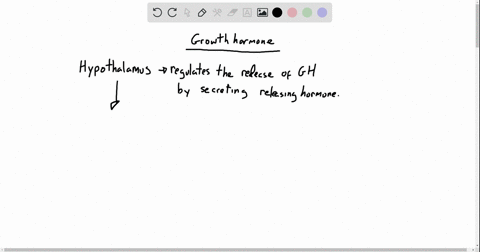 Growth hormone
Hypothalamus → regulates the release of GH
by secreting releasing hormone.